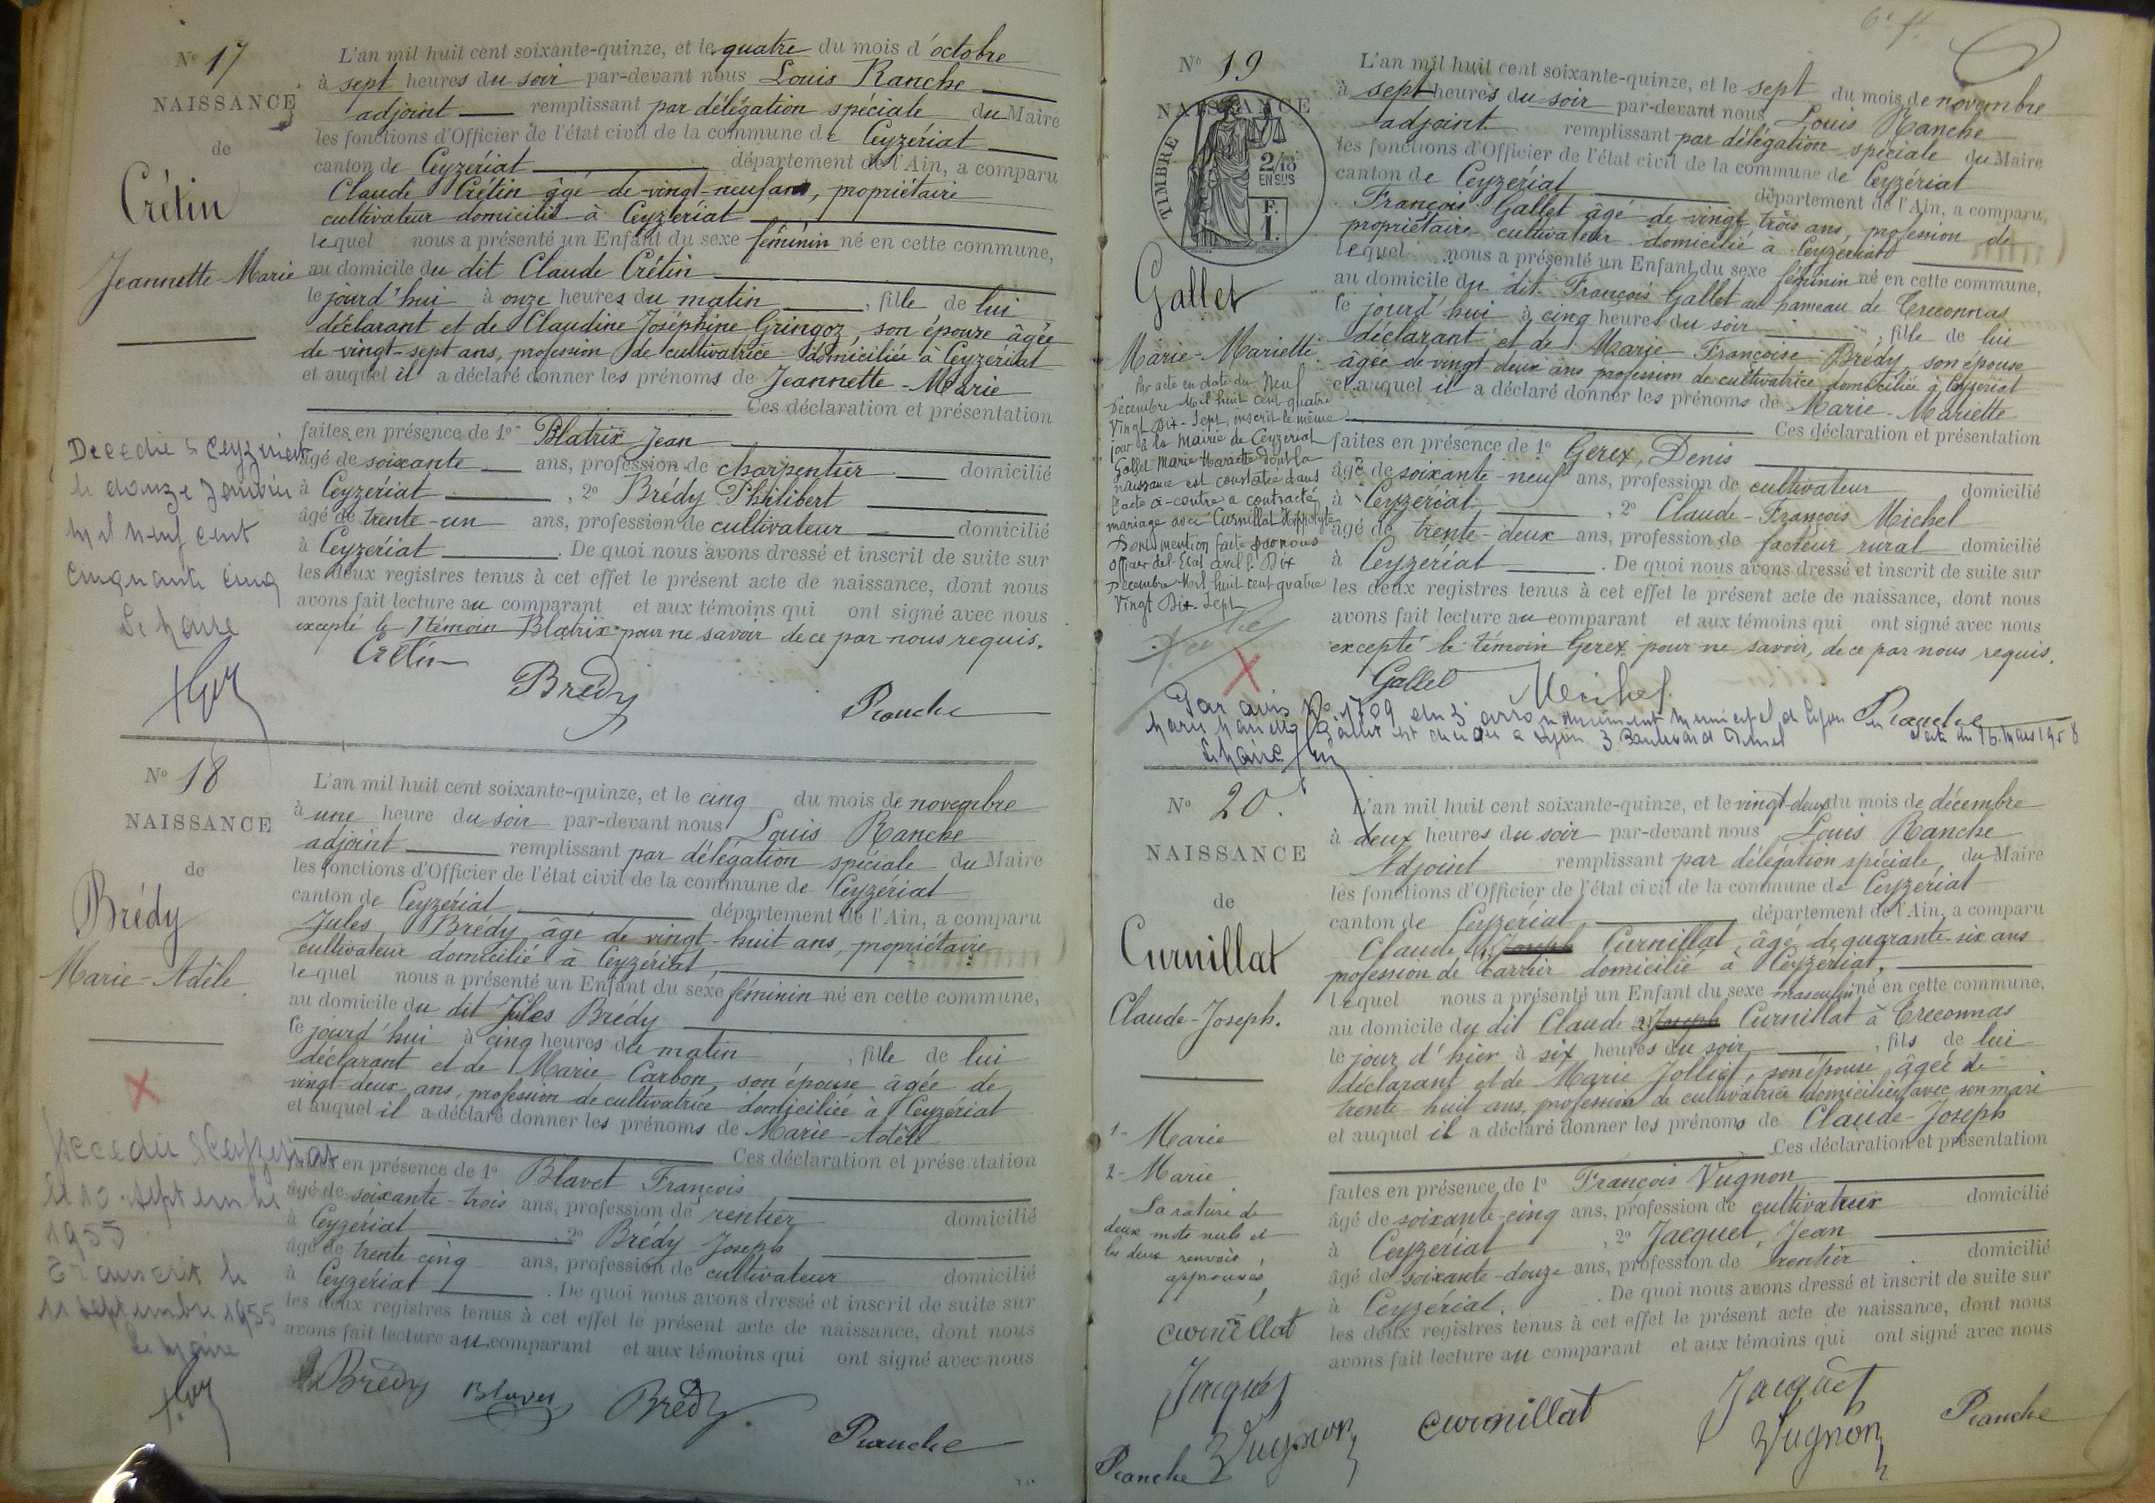 N° 17
NAISSANCE
de
Crétin
Jeannette-Marie
L'an mil huit cent soixante-quinze, et le quatre du mois d'octobre
à sept heures du soir par-devant nous Louis Ranche
adjoint remplissant par délégation spéciale du Maire
les fonctions d'Officier de l'état civil de la commune de Ceyzériat
canton de Ceyzériat département de l'Ain, a comparu
Claude Crétin âgé de vingt-neuf ans, propriétaire
cultivateur domicilié à Ceyzériat
lequel nous a présenté un Enfant du sexe féminin né en cette commune,
au domicile du dit Claude Crétin
le jourd'hui à onze heures du matin, fille de lui
déclarant et de Claudine Joséphine Gringoz, son épouse âgée
de vingt-sept ans, profession de cultivatrice domiciliée à Ceyzériat
et auquel il a déclaré donner les prénoms de Jeannette-Marie
Ces déclaration et présentation
faites en présence de 1° Blatrix Jean
âgé de soixante ans, profession de charpentier domicilié
à Ceyzériat, 2° Brédy Philibert
âgé de trente-un ans, profession de cultivateur domicilié
à Ceyzériat. De quoi nous avons dressé et inscrit de suite sur
les deux registres tenus à cet effet le présent acte de naissance, dont nous
avons fait lecture au comparant et aux témoins qui ont signé avec nous
excepté le 1 témoin Blatrix pour ne savoir de ce par nous requis.
Crétin
Brédy
Ranche
Decedée à Ceyzeriat
le douze Janvier
mil neuf cent
cinquante cinq
Le Maire
N° 18
NAISSANCE
de
Brédy
Marie-Adèle
L'an mil huit cent soixante-quinze, et le cinq du mois de novembre
à une heure du soir par-devant nous Louis Ranche
adjoint remplissant par délégation spéciale du Maire
les fonctions d'Officier de l'état civil de la commune de Ceyzériat
canton de Ceyzériat département de l'Ain, a comparu
Jules Brédy âgé de vingt-huit ans, propriétaire
cultivateur domicilié à Ceyzériat,
lequel nous a présenté un Enfant du sexe féminin né en cette commune,
au domicile du dit Jules Brédy
le jourd'hui à cinq heures du matin, fille de lui
déclarant et de Marie Carbon, son épouse âgée de
vingt-deux ans, profession de cultivatrice domiciliée à Ceyzériat
et auquel il a déclaré donner les prénoms de Marie-Adèle
Ces déclaration et présentation
faites en présence de 1° Blavet François
âgé de soixante-trois ans, profession de rentier domicilié
à Ceyzériat, 2° Brédy Joseph
âgé de trente cinq ans, profession de cultivateur domicilié
à Ceyzériat. De quoi nous avons dressé et inscrit de suite sur
les deux registres tenus à cet effet le présent acte de naissance, dont nous
avons fait lecture au comparant et aux témoins qui ont signé avec nous
Brédy Blavet Brédy.
Ranche
Decedée à Ceyzeriat
le 10 Septembre
1955
Transcrit le
11 Septembre 1955
Le Maire
N° 19
NAISSANCE
TIMBRE
2/10 EN SUS
F. 1.
Gallet
Marie-Mariette
L'an mil huit cent soixante-quinze, et le sept du mois de novembre
à sept heures du soir par-devant nous Louis Ranche
adjoint remplissant par délégation spéciale du Maire
les fonctions d'Officier de l'état civil de la commune de Ceyzériat
canton de Ceyzériat département de l'Ain, a comparu
François Gallet âgé de vingt trois ans, profession de
propriétaire cultivateur domicilié à Ceyzériat
lequel nous a présenté un Enfant du sexe féminin né en cette commune,
au domicile du dit François Gallet au hameau de Treconnas
le jourd'hui à cinq heures du soir, fille de lui
déclarant et de Marie-Françoise Brédy, son épouse
âgée de vingt deux ans profession de cultivatrice domiciliée à Ceyzériat
et auquel il a déclaré donner les prénoms de Marie-Mariette
Ces déclaration et présentation
faites en présence de 1° Gerex, Denis
âgé de soixante-neuf ans, profession de cultivateur domicilié
à Ceyzériat, 2° Claude-François Michel
âgé de trente-deux ans, profession de facteur rural domicilié
à Ceyzériat. De quoi nous avons dressé et inscrit de suite sur
les deux registres tenus à cet effet le présent acte de naissance, dont nous
avons fait lecture au comparant et aux témoins qui ont signé avec nous
excepté le témoin Gerex pour ne savoir, de ce par nous requis.
Gallet Michel
Ranche
Par acte en date du Neuf
Décembre Mil huit cent quatre
Vingt Dix-Sept, inscrit le même
jour à la Mairie de Ceyzeriat
Gallet Marie Mariette dont la
naissance est constatée dans
l'acte ci-contre a contracté
mariage avec Curnillat Hippolyte
Dont mention faite par nous
officier de l'Etat civil le Dix
Décembre Mil huit cent quatre
Vingt Dix-Sept
Par avis No 1709 du 3 arrondissement municipal de Lyon en date du 15 mars 1958
Marie Mariette Gallet est décédée à Lyon 3 Boulevard
Le Maire
N° 20.
NAISSANCE
de
Curnillat
Claude-Joseph.
L'an mil huit cent soixante-quinze, et le vingt-deux du mois de décembre
à deux heures du soir par-devant nous Louis Ranche
Adjoint remplissant par délégation spéciale du Maire
les fonctions d'Officier de l'état civil de la commune de Ceyzériat
canton de Ceyzériat, département de l'Ain, a comparu
Claude Joseph Curnillat, âgé de quarante-six ans
profession de carrier domicilié à Ceyzériat,
lequel nous a présenté un Enfant du sexe masculin né en cette commune,
au domicile du dit Claude Joseph Curnillat à Treconnas
le jour d'hier à six heures du soir, fils de lui
déclarant et de Marie Jolliet, son épouse âgée de
trente-huit ans, profession de cultivatrice domiciliée avec son mari
et auquel il a déclaré donner les prénoms de Claude-Joseph
Ces déclaration et présentation
faites en présence de 1° François Vugnon
âgé de soixante-cinq ans, profession de cultivateur domicilié
à Ceyzériat, 2° Jacquet, Jean
âgé de soixante-douze ans, profession de rentier domicilié
à Ceyzériat. De quoi nous avons dressé et inscrit de suite sur
les deux registres tenus à cet effet le présent acte de naissance, dont nous
avons fait lecture au comparant et aux témoins qui ont signé avec nous
1- Marie
2- Marie
La rature de
deux mots nuls et
les deux renvois
approuvés,
Curnillat
Jacquet
Vugnon
Ranche
Curnillat
Jacquet
Vugnon
Ranche